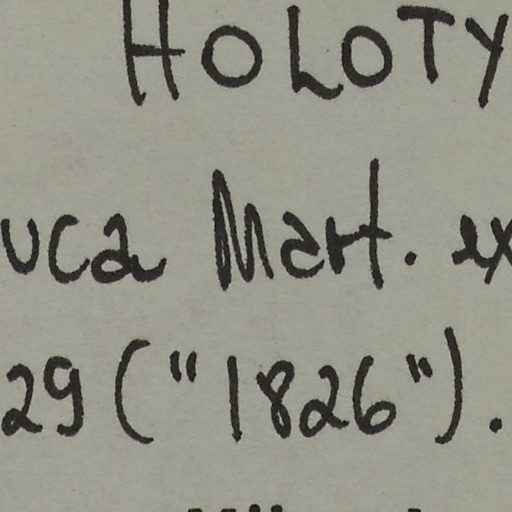 HOLOTY
uca Mart. ex
29 ("1826").